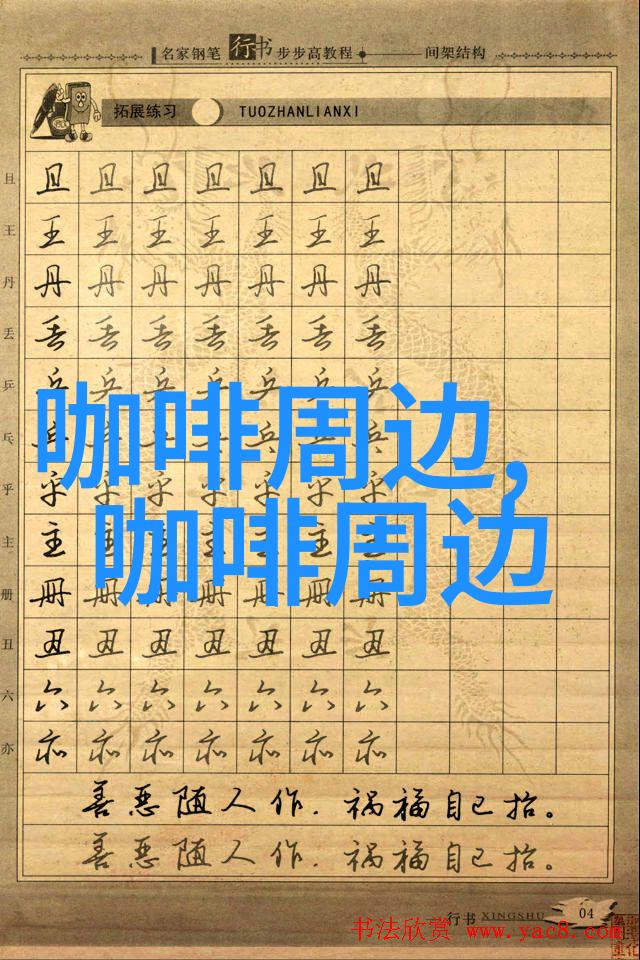 名家钢笔行书步步高教程 间架结构
拓展练习 TUOZHANLIANXI
且 且 且 且 且 且 且 且
王 王 王 王 王 王 王 王
丹 丹 丹 丹 丹 丹 丹 丹
丢 丢 丢 丢 丢 丢 丢 丢
乒 乒 乒 乒 乒 乒 乒 乒
乓 乓 乓 乓 乓 乓 乓 乓
咖啡周边,
乎 乎 乎 乎 乎 乎 乎 乎
主 主 主 主 主 主 主 主
咖啡周边
册 册 册 册 册 册 册 册
丑 丑 丑 丑 丑 丑 丑 丑
六 六 六 六 六 六 六 六
亦 亦 亦 亦 亦 亦 亦 亦
善恶随人作,祸福自己招。
善恶随人作,祸福自己招。
行书 XINGSHU 04
书法欣赏 www.yac8.com